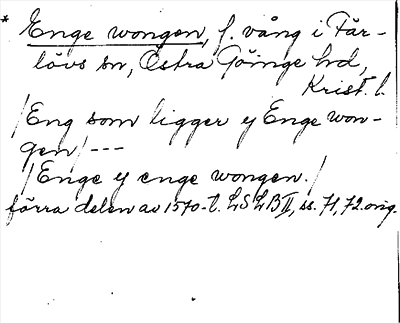 * Enge wongen, f. vång i Fär-
lövs sn, Östra Göinge hd,
Krist. l.
/Eng som ligger y Enge won-
gen/ ---
/Enge y enge wongen./
förra delen av 1570-t. LSLB II, ss. 71, 72. orig.